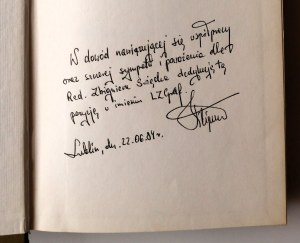 W dowód nawiązującej się współpracy
oraz szczerej sympatii i
Red. Zbigniewa dedykują tę
pozycję w imieniu LZGraf.
Lublin, dn. 22.06.84r.